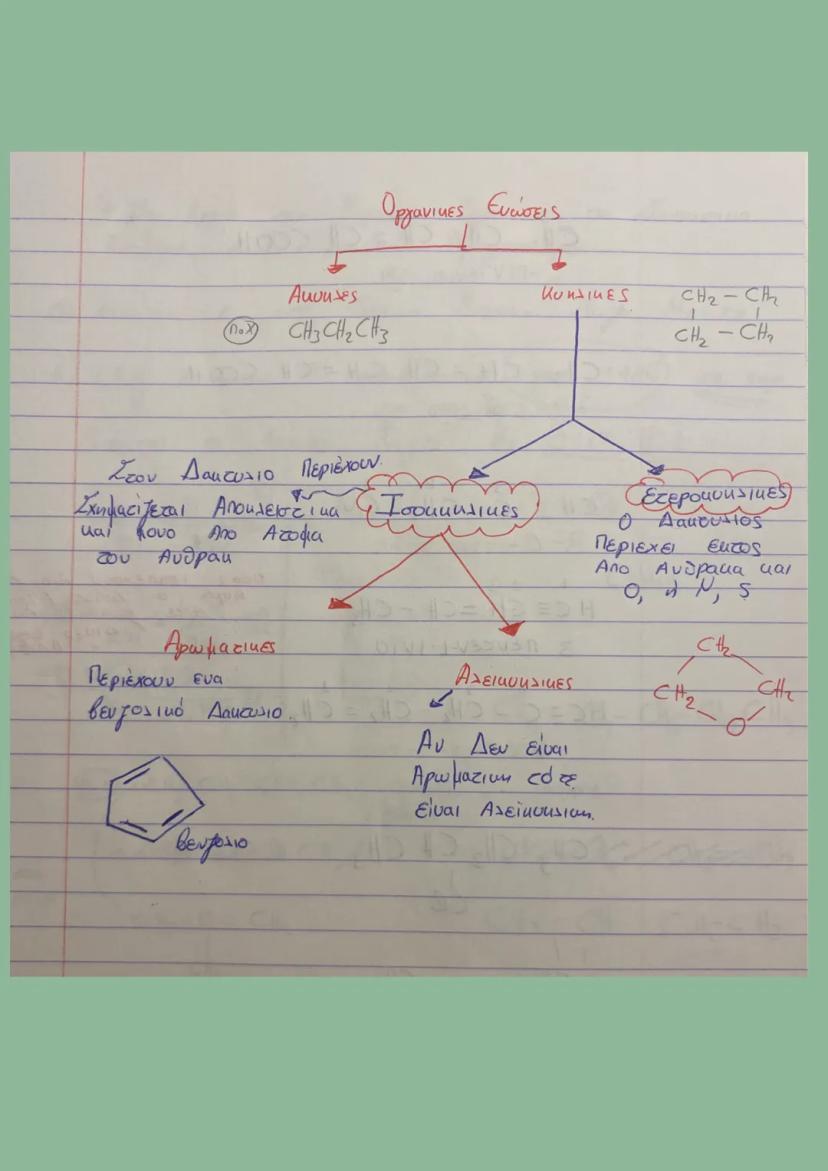 Οργανικες Ενώσεις
Ακυκλες
Κυκλικες
CH2 – CH2
π.χ
CH3CH2CH3
CH2 – CH2
Στον Δακτυλιο Περιέχουν.
Σχηματίζεται Αποκλειστικα
και μονο Απο Ατομα
του Ανθρακ
Ισοκυκλικες
Ετεροκυκλικες
Ο Δακτυλιος
Περιεχει εκτος
Απο Ανθρακα και
Ο, ή Ν, S
Αρωματικες
Περιέχουν ενα
βενζολικό Δακτυλιο.
Αλεικυκλικες
Αν Δεν είναι
Αρωματικη τότε
είναι Αλείκυκλικη.
CH2
CH2
CH2
O
βενζολιο